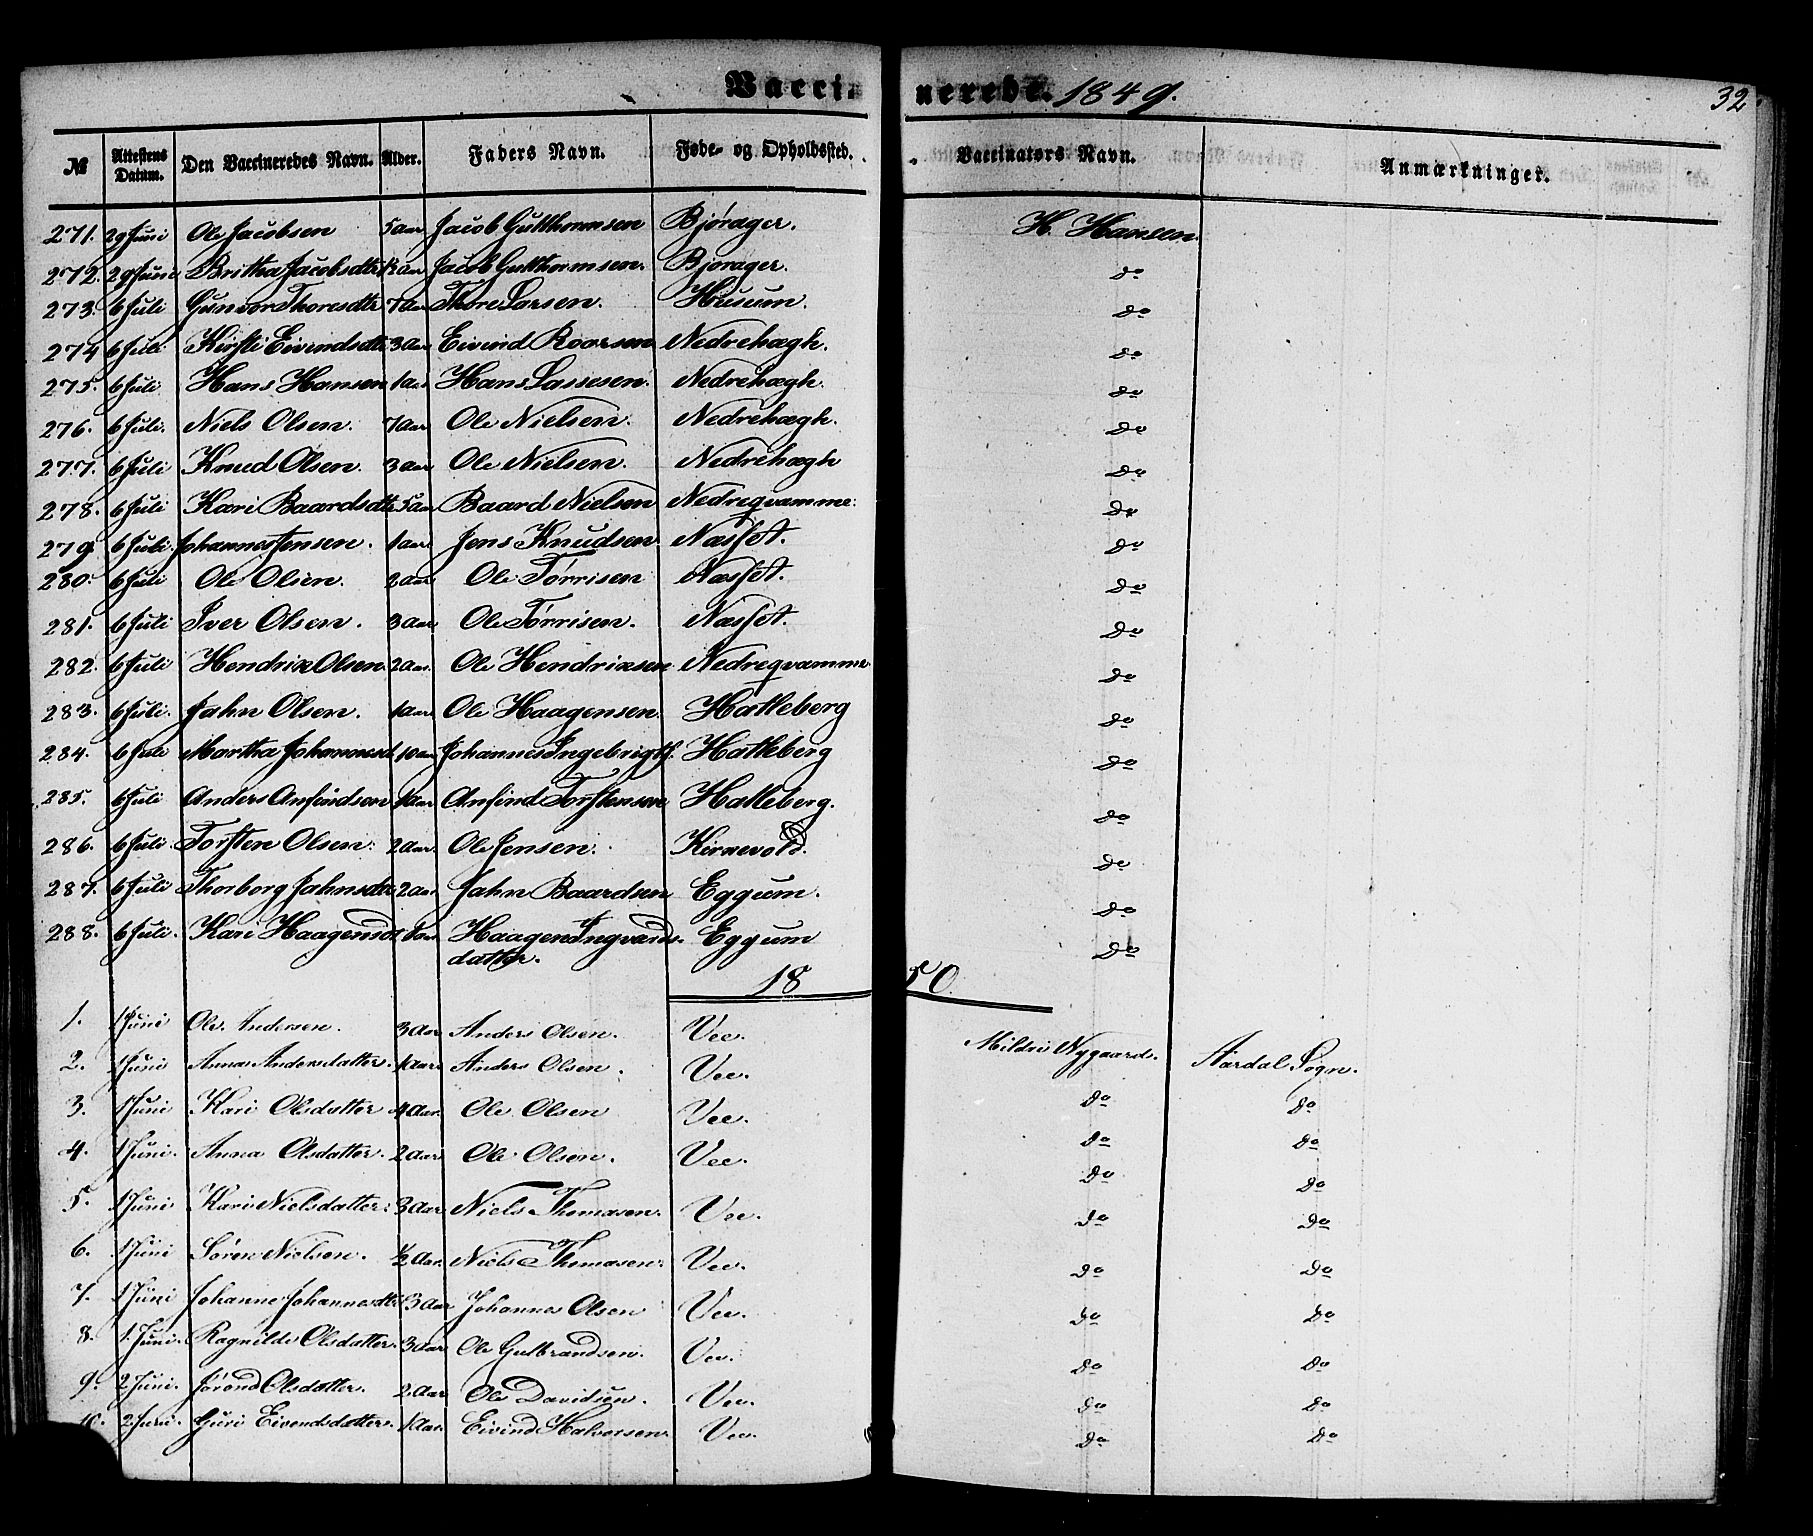 Vaccinerede. 1849. 32
№ Attestens Datum. Den Vaccineredes Navn. Alder. Faders Navn. Føde- og Opholdssted. Vaccinatørs Navn. Anmærkninger.
271. 29 Juni Ole Jacobsen 5 aar Jacob Gutthormsen Bjórager. H. Hansen.
272. 29 Juni Britha Jacobsdtr aar Jacob Gutthormsen. Bjorager. do
273. 6 Juli Gunvor Thoresdtr 7 aar Thore Larsen. Husum. do
274 6 Juli Kirsti Eivindsdtr 3 aar Eivind Roarsen Nedrehægh. do
275. 6 Juli Hans Hansen 1 aar Hans Lassesen. Nedrehægh. do
276. 6 Juli. Niels Olsen. 7 Aar Ole Nielsen. Nedrehægh. do
277. 6 Juli Knud Olsen. 3 aar Ole Nielsen. Nedrehægh do
278. 6 Juli Kari Baardsdtr 5 aar Baard Nielsen Nedreqvamme. do
279. 6 Juli. Johannes Jensen. 1 aar. Jens Knudsen Næsset. do
280. 6 Juli Ole Olsen. 2 aar. Ole Tørrisen Næsset. do
281. 6 Juli Iver Olsen. 3 aar. Ole Tørrisen. Næsset. do
282. 6 Juli Hendrik Olsen. 2 aar. Ole Hendriksen Nedreqvamme do
283. 6 Juli. Jahn Olsen. 1 aar. Ole Haagensen. Hatleberg do
284. 6 Juli Martha Johannesd. 10 aar Johannes Ingebrigts. Hatleberg do
285. 6 Juli Anders Anfindsen 1 aar Anfind Torstensen Hatleberg. do
286. 6 Juli. Torsten Olsen. 2 aar. Ole Jensen. Kirkevold. do
287. 6 Juli Thorborg Jahnsdtr 2 aar Jahn Baardsen Eggum. do
288. 6 Juli. Kari Haagensdtr aar Haagen Ingvards- Eggum do
datter.
1850.
1. 1 Juni Ole Andersen. 3 Aar Anders Olsen. Vee. Mildri Nygaard. Aardal Sogn.
2. 1 Juni Anna Andersdatter. 1 Aar. Anders Olsen. Vee. do do
3. 1 Juni Kari Olsdatter 4 Aar. Ole Olsen Vee. do do
4. 1 Juni. Anna Olsdatter. 2 Aar. Ole Olsen. Vee. do do
5. 1 Juni Kari Nielsdatter. 3 Aar Niels Thomasen. Vee. do do
6. 1 Juni Søren Nielsen. ½ Aar. Niels Thomasen. Vee. do do
7. 1 Juni Johanne Johannesdtr 13 Aar Johannes Olsen Vee. do do
8. 1. Juni. Ragnilde Olsdatter. 3 Aar Ole Gulbrandsen. Vee. do do
9. 2 Juni. Jørond Olsdatter. 2 Aar Ole Davidsen. Vee. do do
10. 2 Juni. Guri Eivendsdatter. 1 Aar. Eivind Halvorsen. Vee. do do